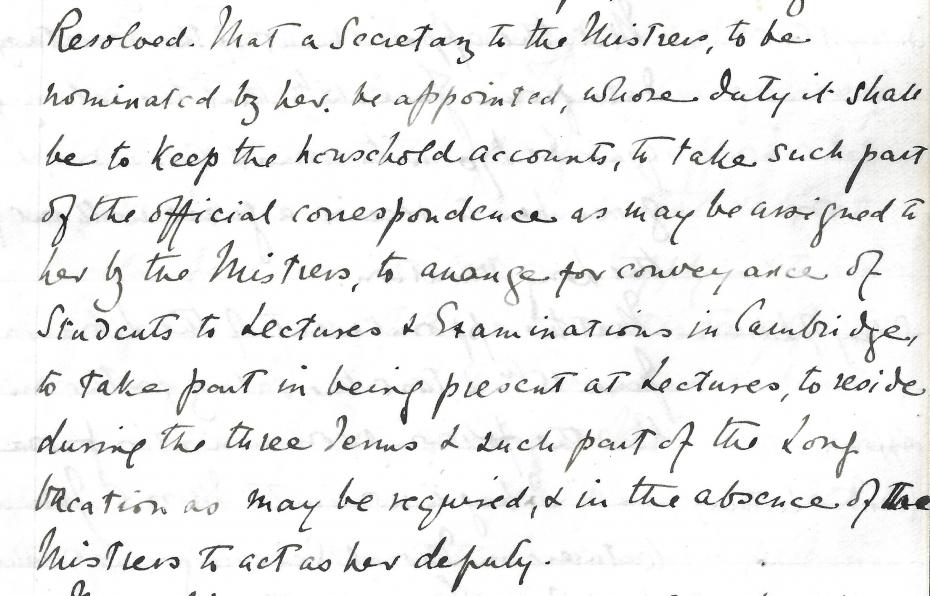 Resolved. That a Secretary to the Mistress, to be
nominated by her, be appointed, whose duty it shall
be to keep the household accounts, to take such part
of the official correspondence as may be assigned to
her by the Mistress, to arrange for conveyance of
Students to Lectures & Examinations in Cambridge,
to take part in being present at Lectures, to reside
during the three Terms & such part of the Long
Vacation as may be required, & in the absence of the
Mistress to act as her deputy.